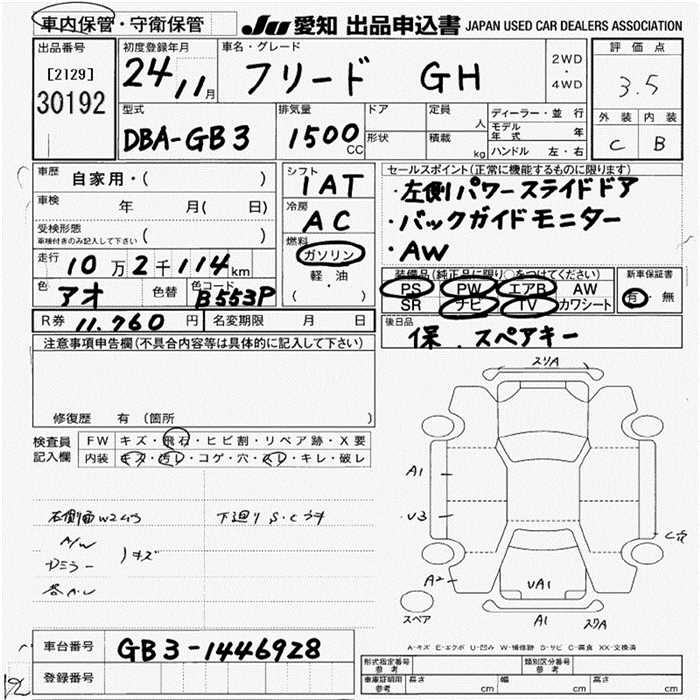 車内保管・守衛保管 JU 愛知 出品申込書 JAPAN USED CAR DEALERS ASSOCIATION
出品番号
[2129]
30192
初度登録年月
24 11月
車名・グレード
フリード GH
2WD
・
4WD
評価点
3.5
外装 内装
C B
型式
DBA-GB3
排気量
1500 CC
ドア
形状
定員
人
積載
kg
ディーラー・並行
モデル
年式 年
ハンドル 左・右
車歴 自家用・( )
車検 年 月( 日)
受検形態
車検付きのみ記入して下さい ( )
走行 10万2千114km
色 アオ 色替 色コード B553P
シフト
1AT
冷房
AC
燃料
ガソリン
軽・油
( )
セールスポイント(正常に機能するものに限ります)
・左側パワースライドドア
・バックガイドモニター
・AW
装備品(純正品に限り○をつけてください)
PS PW エアB AW
SR ナビ TV カワシート
新車保証書
有・無
R券 11,760円 名変期限 月 日
後日品
保、スペアキー
注意事項申告欄(不具合内容等は具体的に記入して下さい)
修復歴 有(箇所 )
検査員
記入欄
FW キズ・飛石・ヒビ割・リペア跡・X要
内装 キズ・汚レ・コゲ・穴・スレ・キレ・破レ
A/W
キズ
下廻りS・Cサ
スリA
A1
U3
A2
UA1
A1
スリA
スペア
A-キズ E-エクボ U-凹み W-補修跡 S-サビ C-腐食 XX-交換済
車台番号 GB3-1446928
登録番号
形式指定番号
参考
類別区分番号
参考
車庫証明用
参考
長さ cm 幅 cm 高さ cm